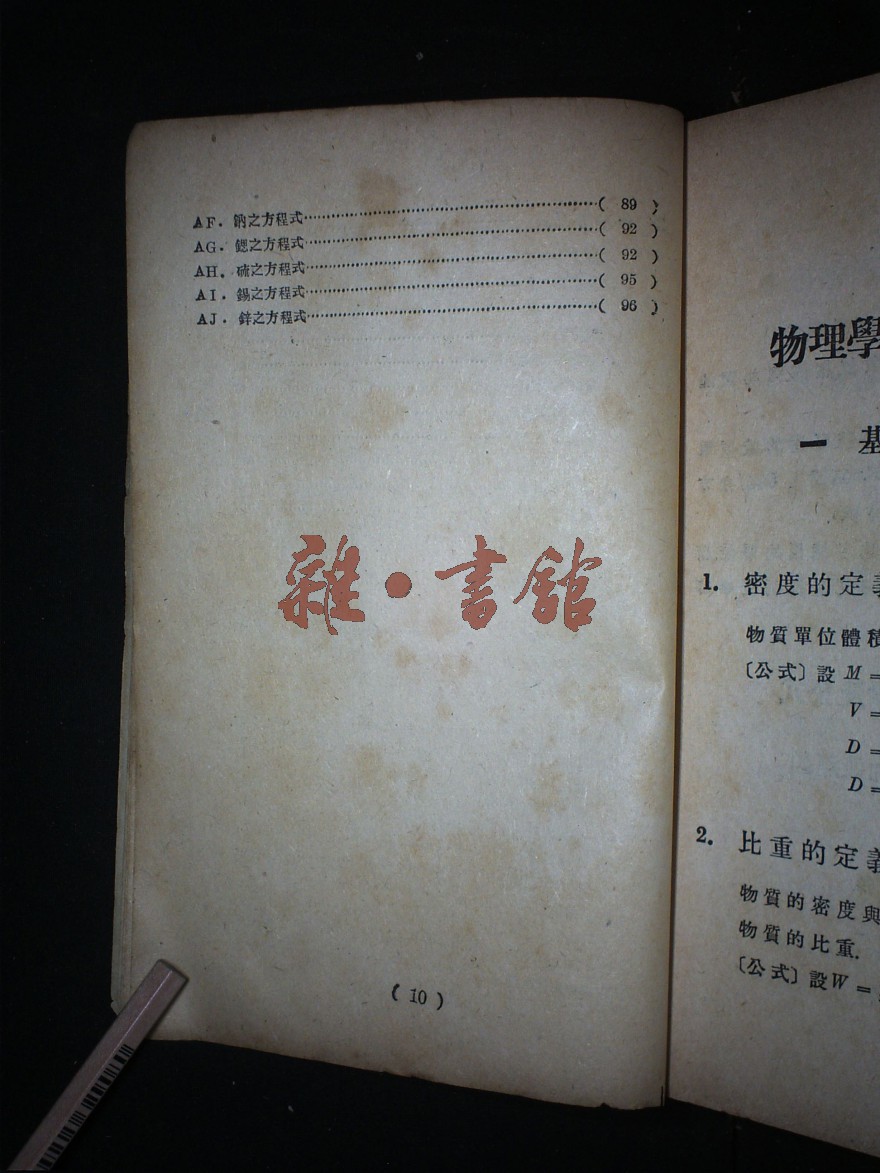 AF. 鈉之方程式………………………………( 89 )
AG. 鍶之方程式………………………………( 92 )
AH. 硫之方程式………………………………( 92 )
AI. 錫之方程式………………………………( 95 )
AJ. 鋅之方程式………………………………( 96 )
雜·書館
( 10 )
物理學
一 基
1. 密度的定義
物質單位體積
〔公式〕設 M =
V =
D =
D =
2. 比重的定義
物質的密度與
物質的比重.
〔公式〕設W =